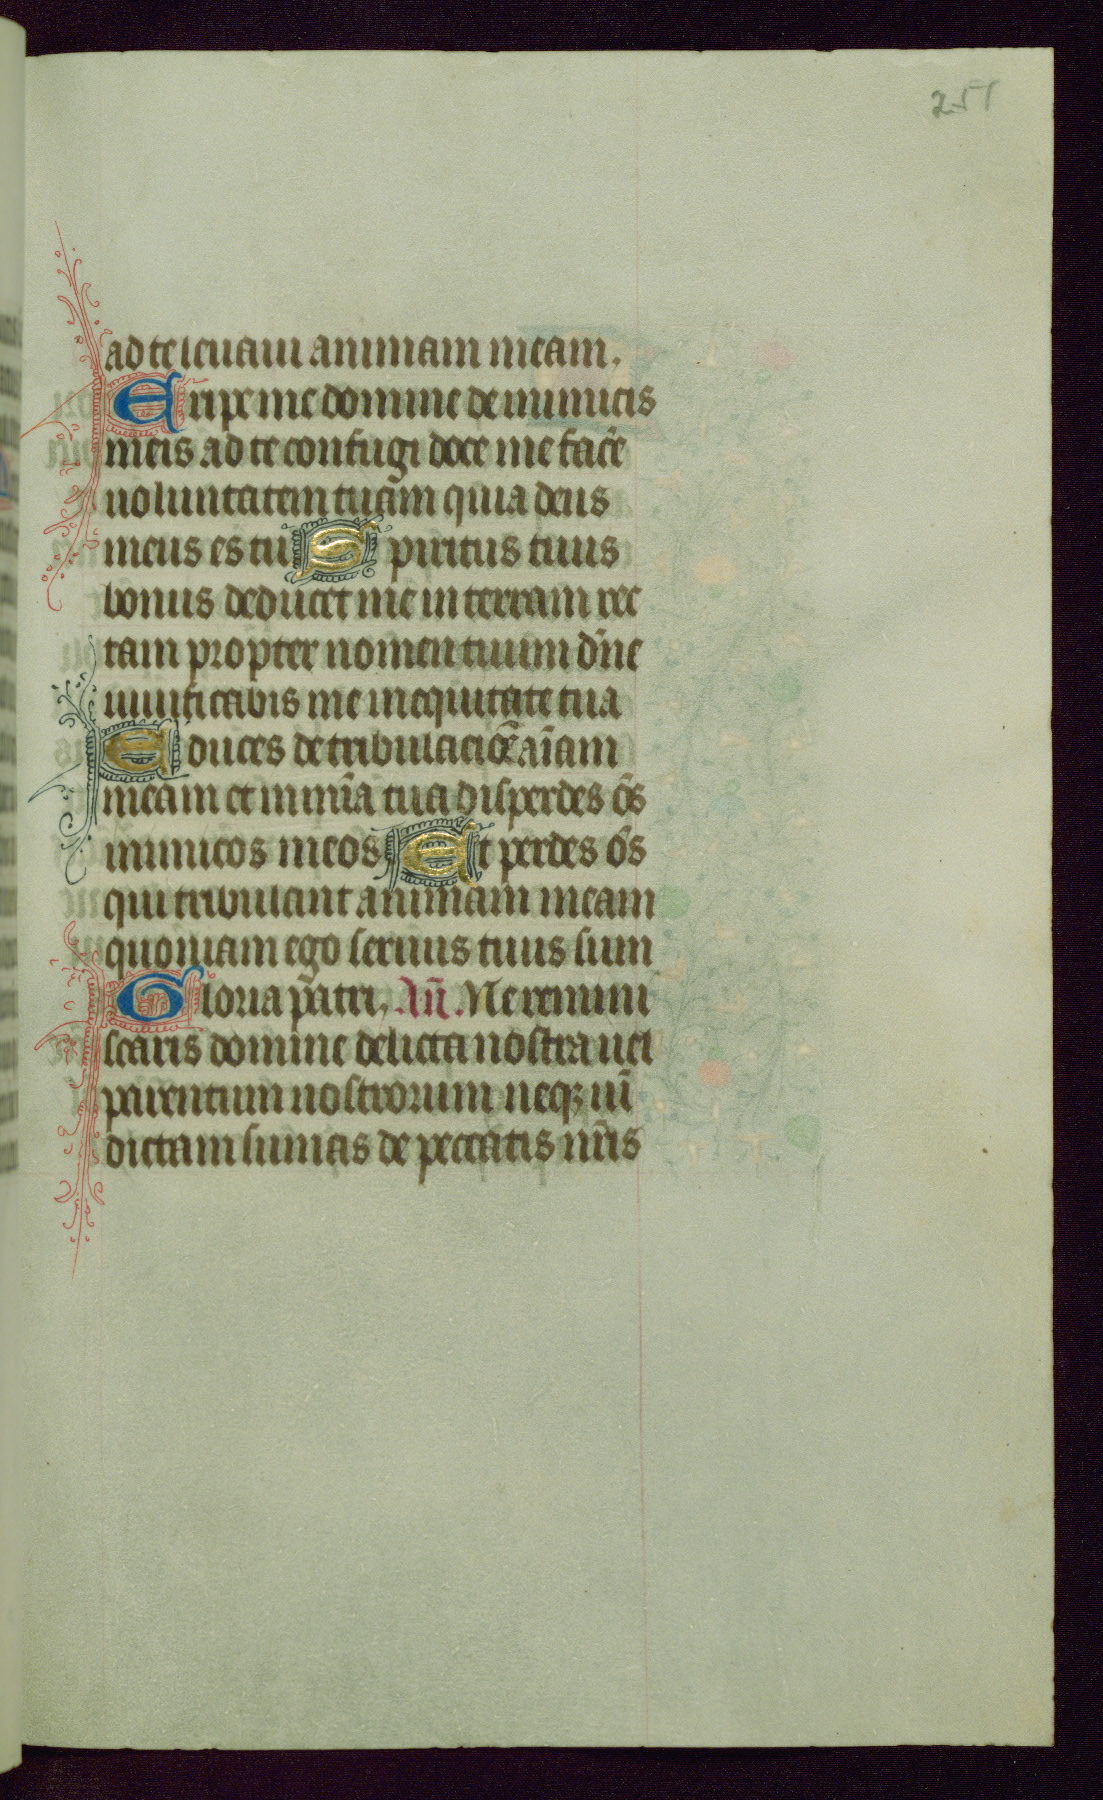 251
ad te leuaui animam meam.
Eripe me domine de inimicis
meis ad te confugi doce me facẽ
uoluntatem tuam quia deus
meus es tu Spiritus tuus
bonus deducet me in terram rec
tam propter nomen tuum dñe
uiuificabis me in equitate tua
Educes de tribulaciõe aĩam
meam et in mĩa tua disperdes õs
inimicos meos Et perdes õs
qui tribulant animam meam
quoniam ego seruus tuus sum
Gloria patri. Añ. Ne remini
scaris domine delicta nostra uel
parentum nostrorum neqꝫ uĩ
dictam sumas de peccatis nr̃is